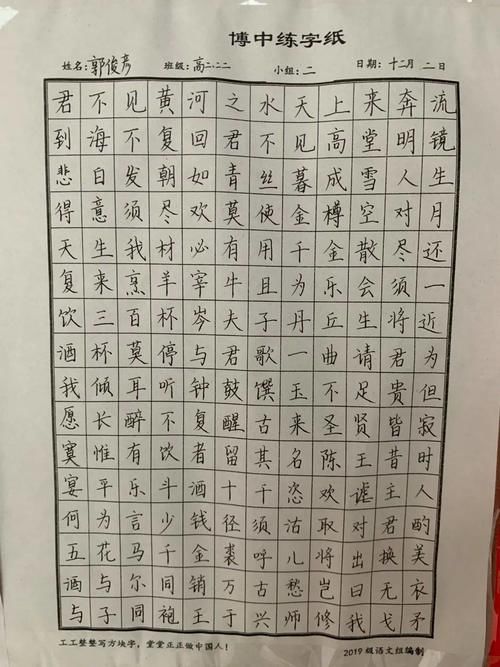 博中练字纸
姓名:郭俊彦 班级:高二.二二 小组:二 日期:十二月二日
君不见黄河之水天上来奔流
到海不复回君不见高堂明镜
悲白发朝如青丝暮成雪人生
得意须尽欢莫使金樽空对月
天生我材必有用千金散尽还
复来烹羊宰牛且为乐会须一
饮三百杯岑夫子丹丘生将近
酒杯莫停与君歌一曲请君为
我倾耳听钟鼓馔玉不足贵但
愿长醉不复醒古来圣贤皆寂
寞惟有饮者留其名陈王昔时
宴平乐斗酒十千恣欢谑主人
何为言少钱径须沽取对君酌
五花马千金裘呼儿将出换美
酒与尔同销万古愁岂曰无衣
与子同袍王于兴师修我戈矛
工工整整写方块字,堂堂正正做中国人! 2019级语文组编制